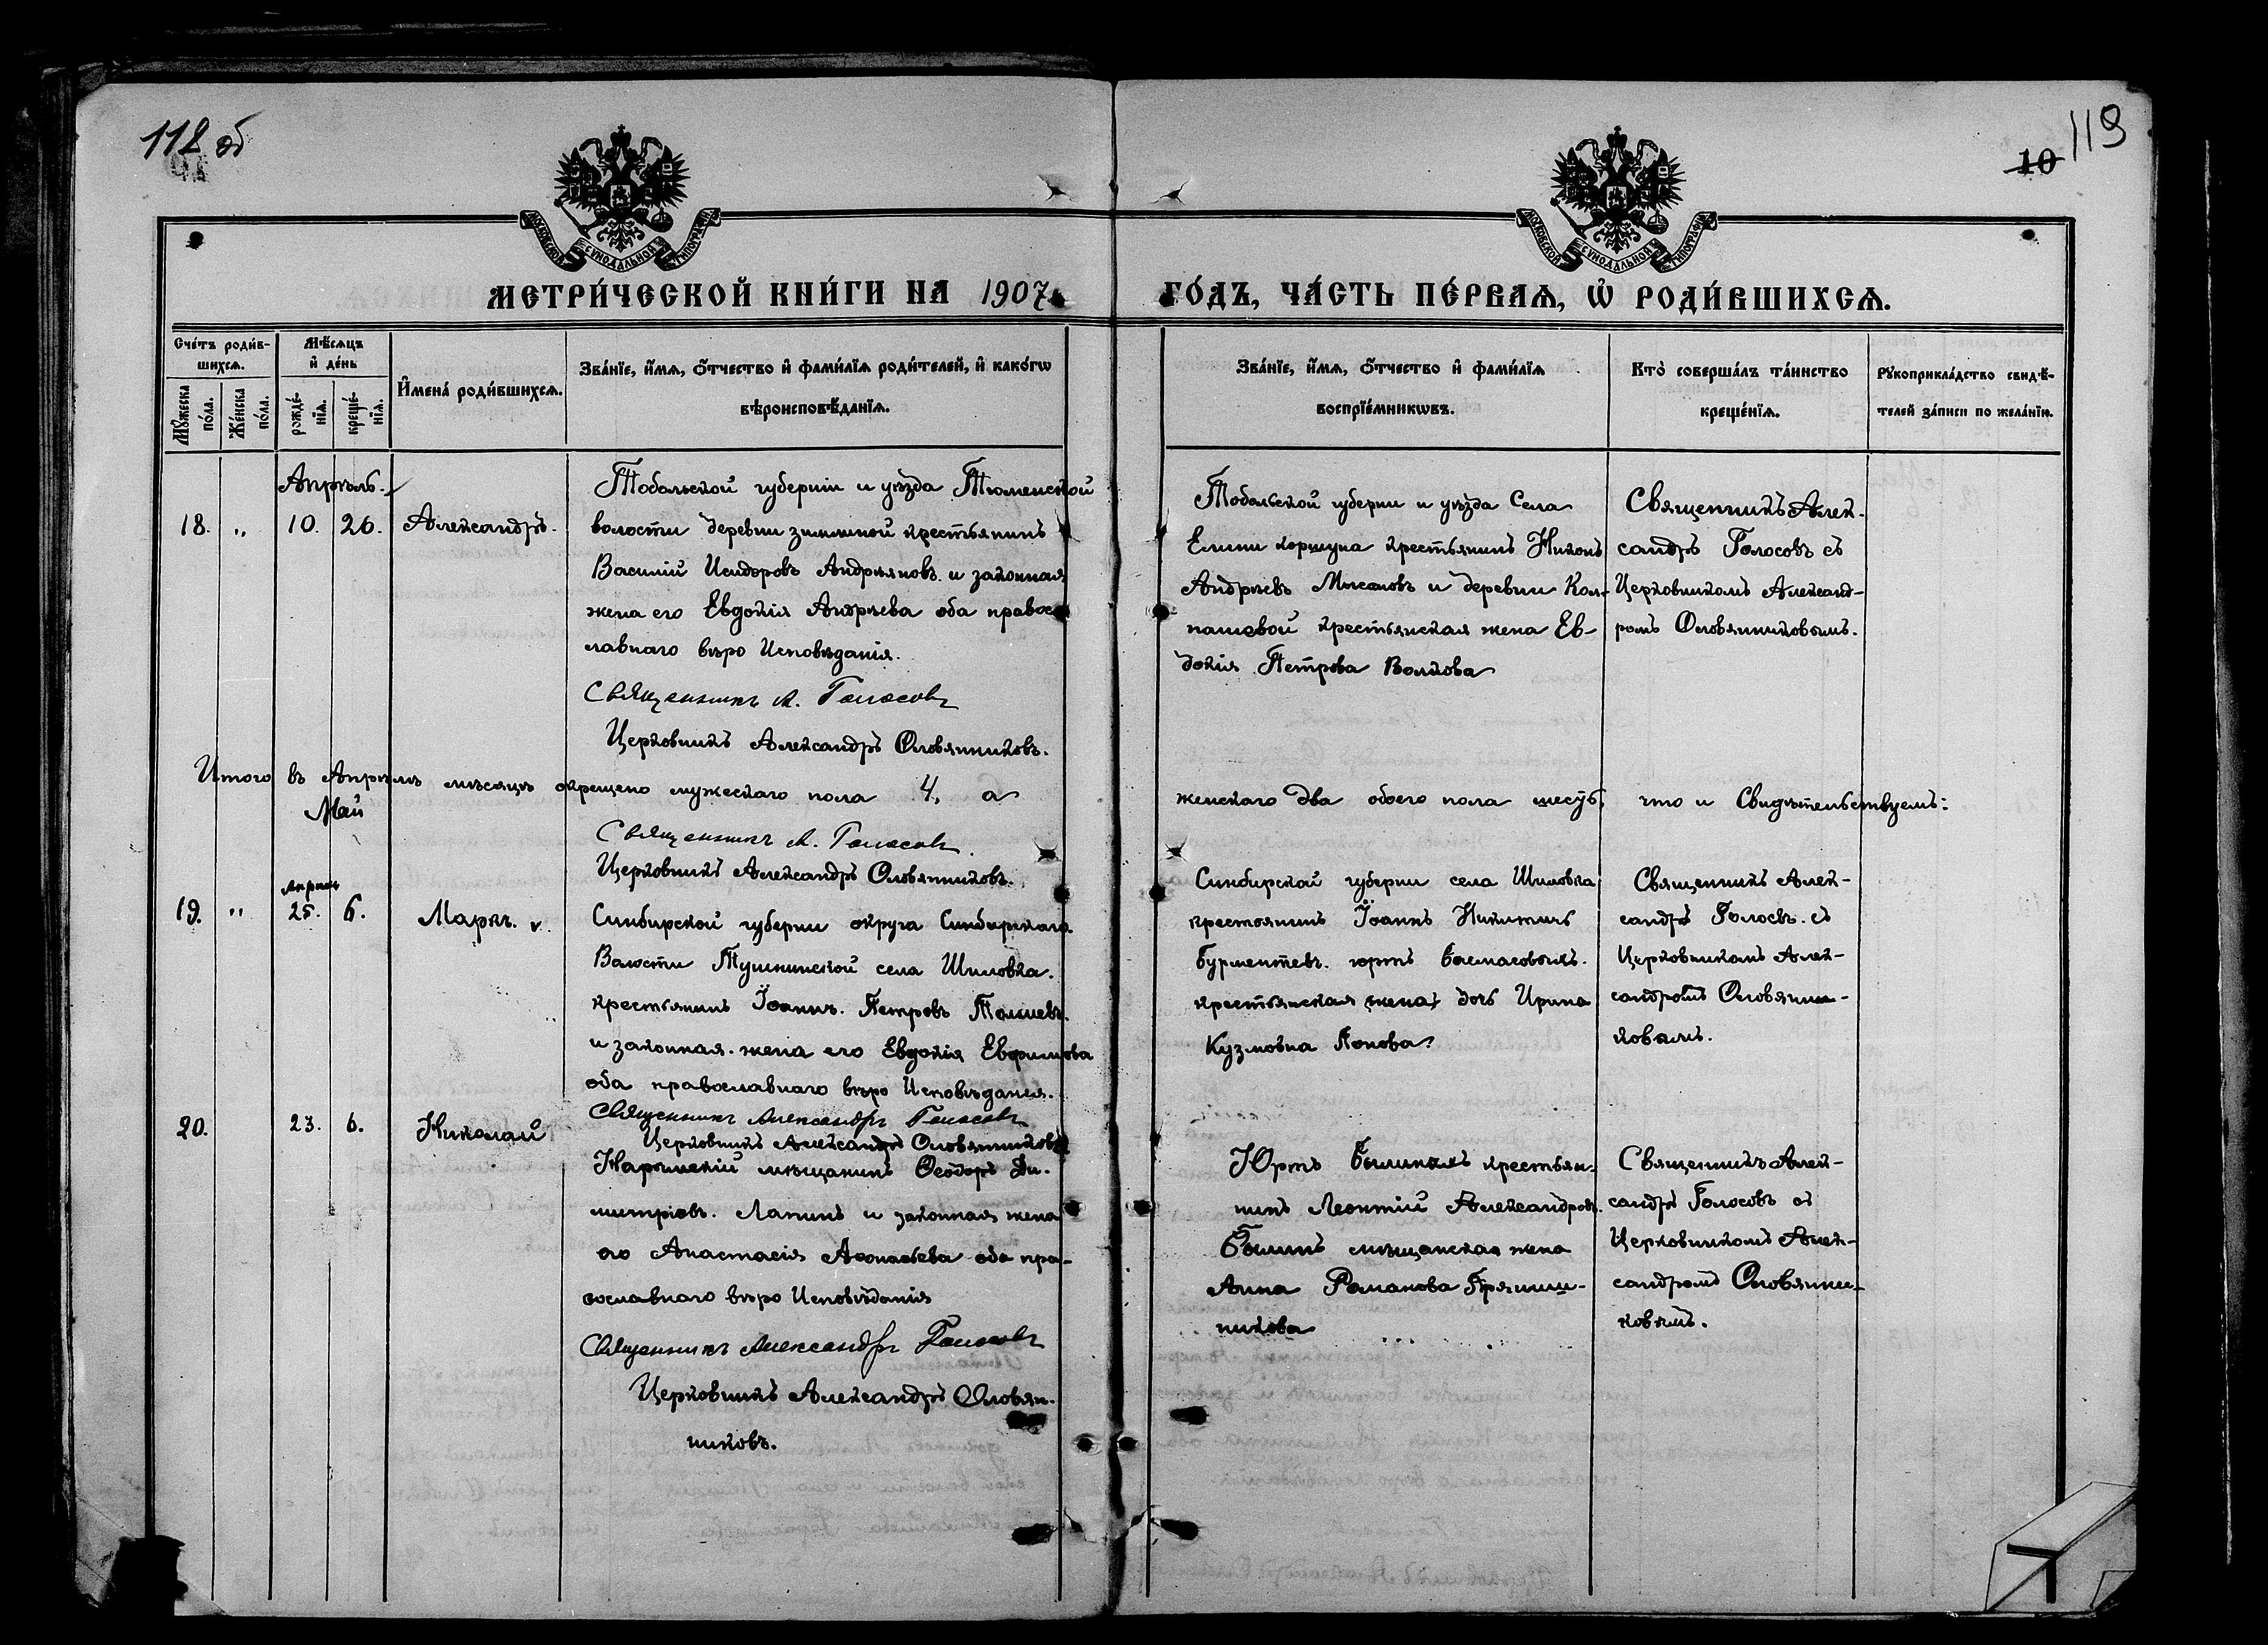 112 об
119
10
МОСКОВСКОЙ СѴНОДАЛЬНОЙ ТИПОГРАФІИ
МОСКОВСКОЙ СѴНОДАЛЬНОЙ ТИПОГРАФІИ
МЕТРИ́ЧЕСКОЙ КНИ́ГИ НА 1907 ГО́ДЪ, ЧА́СТЬ ПЕ́РВАѦ, Ѡ҆ РОДИ́ВШИХСѦ.
Сче́тъ роди́в-
шихсѧ.
Мꙋ́жеска по́ла.
Же́нска по́ла.
Мѣ́сѧцъ
и҆ де́нь
рожде́-нїѧ.
креще́-нїѧ.
И҆мена̀ роди́вшихсѧ.
Зва́нїе, и҆́мѧ, ѻ҆́тчество и҆ фами́лїѧ роди́телей, и҆ како́гѡ
вѣроисповѣ́данїѧ.
Зва́нїе, и҆́мѧ, ѻ҆́тчество и҆ фами́лїѧ
воспрїе́мникѡвъ.
Кто̀ соверша́лъ та́инство
креще́нїѧ.
Рꙋкоприкла́дство свидѣ́-
телей за́писи по жела́нїю.
Апрѣль.
18. „ 10. 26. Александръ.
Тобольской губерніи и уѣзда Тюменской
волости деревни зиминой крестьянинъ
Василій Исидоровъ Андрѣяновъ и законная
жена его Евдокія Андрѣева оба право
лавнаго вѣро Исповѣданія.
Священникъ А. Голосовъ
Церковникъ Александръ Оловянниковъ.
Тобольской губерни и уѣзда Села
крестьянинъ Никонъ
Андрѣевъ и деревни
крестьянская жена Ев-
докія Петрова Волкова
Священникъ Алек-
сандръ Голосовъ съ
Церковникомъ Александ-
ромъ Оловянниковымъ.
Итого въ Апрѣлѣ мѣсяцѣ окрещено мужескаго пола 4, а женскаго два обоего пола шесть, что и Свидѣтельствуемъ:
Май
Священникъ А. Голосовъ.
Церковникъ Александръ Оловянниковъ.
Апрель
19. „ 25. 6. Маркъ.
Симбирской губерни округа Симбирскаго.
Волости села Шиловка.
крестьянинъ Іоаннъ. Петровъ
и законная. жена его Евдокія Евфимова
оба православнаго вѣро Исповѣдания.
Священникъ Александръ Голосовъ
Церковникъ Александръ Оловянниковъ
Симбирской губерни села Шиловка
крестоянинъ Іоаннъ Никитинъ
юртъ
крестьянская жена, дочь Ирина
Кузмовна Попова.
Священникъ Алек-
сандръ Голосвъ. съ
Церковникомъ Алек-
сандромъ Оловянни-
ковымъ.
20. 23. 6. Николай
Нарымскій мѣщанинъ Ѳеодоръ Ди-
митріевъ. Лапинъ и законная жена
его Анастасія Аѳонасьева оба пра-
вославнаго вѣро Исповѣданія
Священникъ Александръ Голосовъ
Церковникъ Александръ Оловян-
никовъ.
Юртъ крестьян-
инъ Леонтій Александров.
мѣщанская жена
Анна Романова Пряниш-
никова
Священникъ Алек-
сандръ Голосовъ съ
Церковникомъ Алек-
сандромъ Оловянни-
ковымъ.